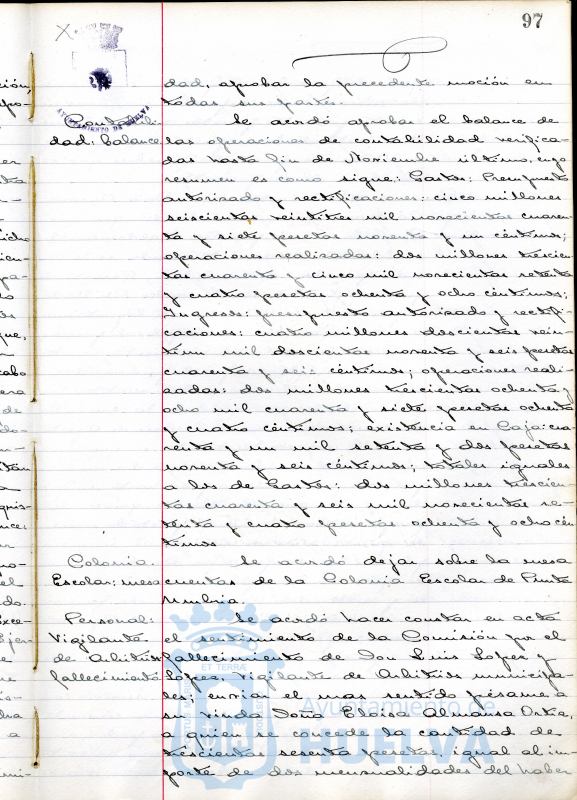 97
AYUNTAMIENTO DE HUELVA
dad, aprobar la precedente moción en
todas sus partes.
Contabili- Se acordó aprobar el balance de
dad: balance las operaciones de contabilidad verifica-
das hasta fin de Noviembre último, cuyo
resumen es como sigue: Gastos: Presupuesto
autorizado y rectificaciones: cinco millones
seiscientas veintitres mil novecientas cuaren-
ta y siete pesetas noventa y un céntimos;
operaciones realizadas: dos millones trescien-
tas cuarenta y cinco mil novecientas setenta
y cuatro pesetas ochenta y ocho céntimos;
Ingresos: presupuesto autorizado y rectifi-
caciones: cuatro millones doscientas vein-
tiun mil doscientas noventa y seis pesetas
cuarenta y seis céntimos; operaciones reali-
zadas: dos millones trescientas ochenta y
ocho mil cuarenta y siete pesetas ochenta
y cuatro céntimos; existencia en Caja: cua-
renta y un mil setenta y dos pesetas
noventa y seis céntimos; totales iguales
a los de Gastos: dos millones trescien-
tas cuarenta y seis mil novecientas se-
tenta y cuatro pesetas ochenta y ocho cén-
timos
Colonia Se acordó dejar sobre la mesa
Escolar: mesa cuentas de la Colonia Escolar de Punta
Umbria.
Personal: Se acordó hacer constar en acta
Vigilante el sentimiento de la Comisión por el
de Arbitrios fallecimiento de Don Luis Lopez y
fallecimiento Lopez, vigilante de Arbitrios municipa-
les; enviar el mas sentido pésame a
su viuda Doña Eloisa Almansa Ortiz,
a quien se concede la cantidad de
trescientas sesenta pesetas, igual al im-
porte de dos mensualidades del haber
Ayuntamiento de
HUELVA